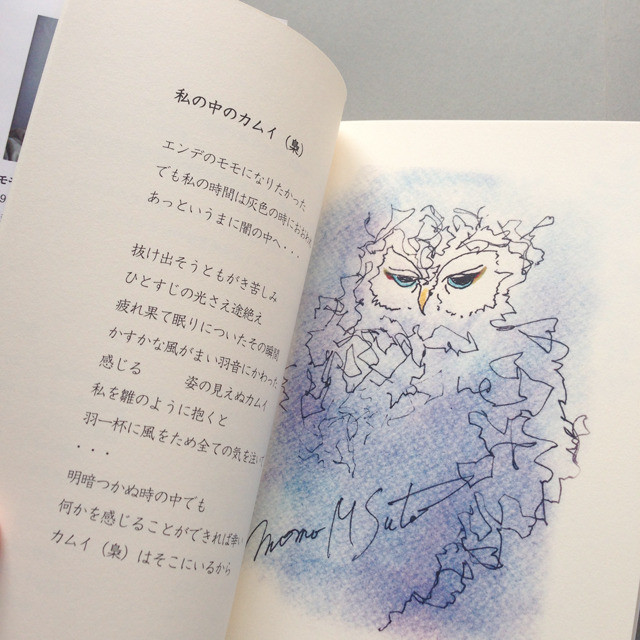 私の中のカムイ（梟）
エンデのモモになりたかった
でも私の時間は灰色の時におおわれ
あっというまに闇の中へ・・・
抜け出そうともがき苦しみ
ひとすじの光さえ途絶え
疲れ果て眠りについたその瞬間
かすかな風がまい羽音にかわった
感じる　　姿の見えぬカムイ
私を雛のように抱くと
羽一杯に風をため全ての気を注いで
・・・
明暗つかぬ時の中でも
何かを感じることができれば幸い
カムイ（梟）はそこにいるから
Momo M Suto